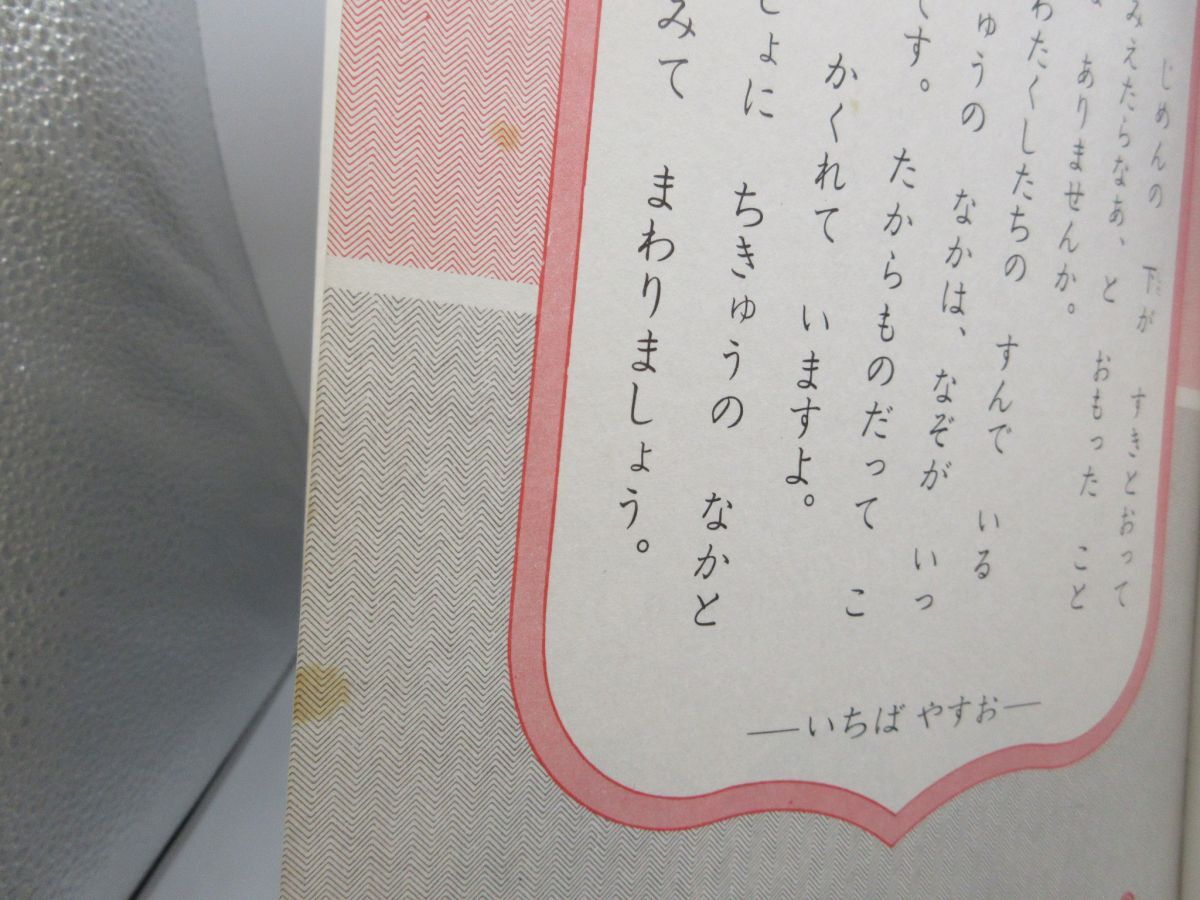 じめんの 下が すきとおって
みえたらなあ、と おもった こと
ありませんか。
わたくしたちの すんで いる
ゅうの なかは、なぞが いっ
です。たからものだって こ
かくれて いますよ。
しょに ちきゅうの なかと
みて まわりましょう。
―いちば やすお―